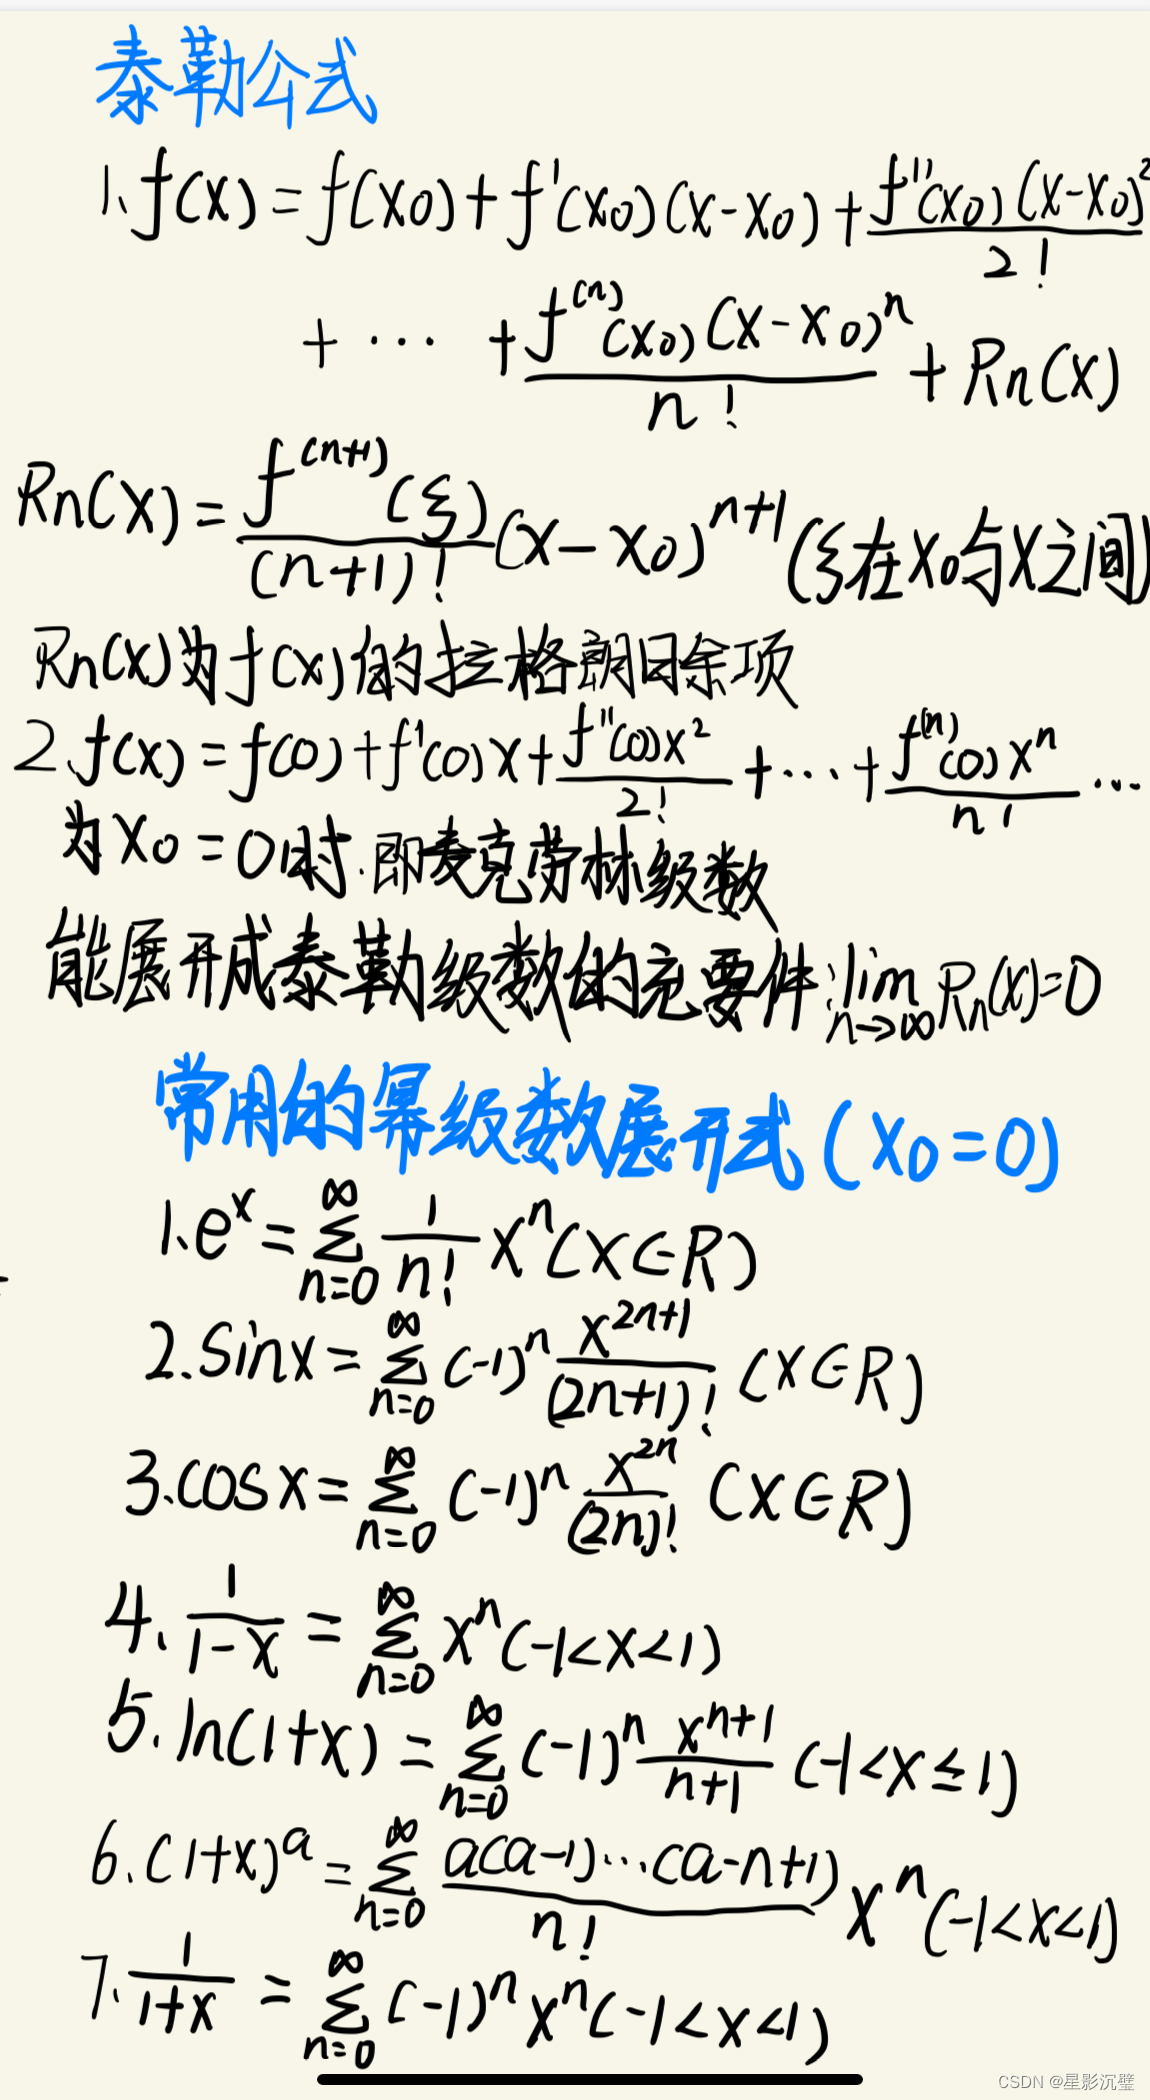 泰勒公式
1. f(x) = f(x₀) + f'(x₀)(x-x₀) + f''(x₀)(x-x₀)²/2!
+ ··· + f⁽ⁿ⁾(x₀)(x-x₀)ⁿ/n! + Rn(x)
Rn(x) = f⁽ⁿ⁺¹⁾(ξ)/(n+1)! (x-x₀)ⁿ⁺¹ (ξ在x₀与x之间)
Rn(x)为f(x)的拉格朗日余项
2. f(x) = f(0) + f'(0)x + f''(0)x²/2! + ··· + f⁽ⁿ⁾(0)xⁿ/n! ···
为x₀=0时.即麦克劳林级数
能展开成泰勒级数的充要件: lim n→∞ Rn(x)=0
常用的幂级数展开式(x₀=0)
1. eˣ = ∞ Σ n=0 1/n! xⁿ (x∈R)
2. sinx = ∞ Σ n=0 (-1)ⁿ x²ⁿ⁺¹/(2n+1)! (x∈R)
3. cosx = ∞ Σ n=0 (-1)ⁿ x²ⁿ/(2n)! (x∈R)
4. 1/1-x = ∞ Σ n=0 xⁿ (-1<x<1)
5. ln(1+x) = ∞ Σ n=0 (-1)ⁿ xⁿ⁺¹/n+1 (-1<x≤1)
6. (1+x)ᵃ = ∞ Σ n=0 a(a-1)···(a-n+1)/n! xⁿ (-1<x<1)
7. 1/1+x = ∞ Σ n=0 (-1)ⁿ xⁿ (-1<x<1)
CSDN @星影沉璧